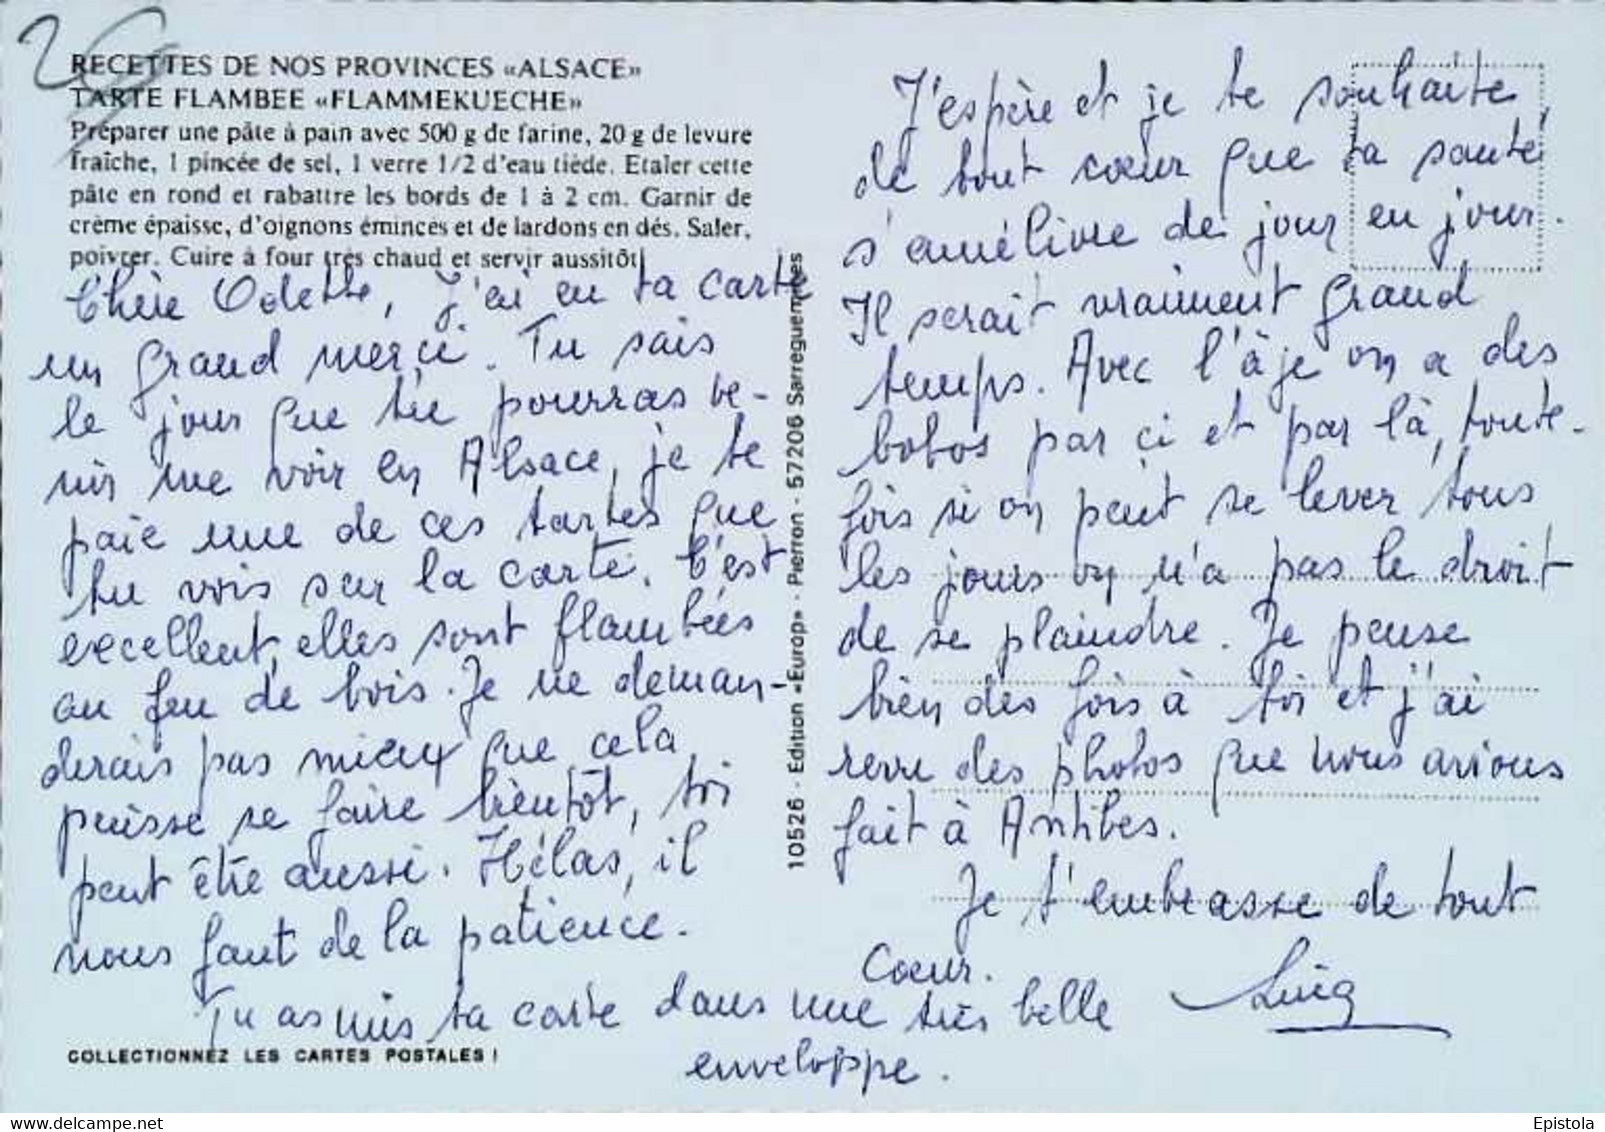 RECETTES DE NOS PROVINCES «ALSACE»
TARTE FLAMBEE «FLAMMEKUECHE»
Préparer une pâte à pain avec 500 g de farine, 20 g de levure
fraîche, 1 pincée de sel, 1 verre 1/2 d'eau tiède. Etaler cette
pâte en rond et rabattre les bords de 1 à 2 cm. Garnir de
crème épaisse, d'oignons émincés et de lardons en dés. Saler,
poivrer. Cuire à four très chaud et servir aussitôt!
Chère Odette, J'ai eu ta carte
un grand merci. Tu sais
le jour que tu pourras ve-
nir me voir en Alsace, je te
paie une de ces tartes que
tu vois sur la carte. C'est
excellent, elles sont flambées
au feu de bois. Je ne deman-
derais pas mieux que cela
puisse se faire bientôt, toi
peut être aussi. Hélas, il
nous faut de la patience.
Tu as mis ta carte dans une très belle
enveloppe.
COLLECTIONNEZ LES CARTES POSTALES !
10526 - Edition «Europ» - Pierron - 57206 Sarreguemines
J'espère et je te souhaite,
de tout coeur que ta santé
s'améliore de jour en jour.
Il serait vraiment grand
temps. Avec l'âje on a des
bobos par ci et par là, toute-
fois si on peut se lever tous
les jours on n'a pas le droit
de se plaindre. Je pense
bien des fois à toi et j'ai
revu des photos que nous avions
fait à Antibes.
Je t'embrasse de tout
Coeur.
delcampe.net
Epistola